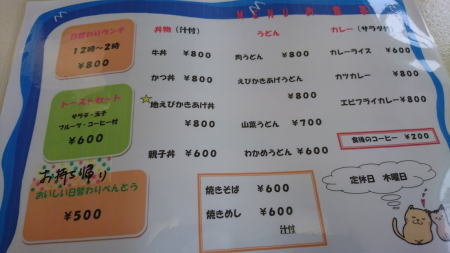 日替わりランチ
12時～2時
¥800
トーストセット
サラダ・玉子
フルーツ・コーヒー付
¥600
お持ち帰り
おいしい日替わりべんとう
¥500
丼物（汁付）
牛丼 ¥800
かつ丼 ¥800
☆地えびかきあげ丼
¥800
親子丼 ¥600
うどん
肉うどん ¥800
えびかきあげうどん
¥800
山菜うどん ¥700
わかめうどん ¥600
カレー（サラダ付
カレーライス ¥600
カツカレー
¥800
エビフライカレー ¥800
食後のコーヒー ¥200
焼きそば ¥600
焼きめし ¥600
汁付
定休日 木曜日